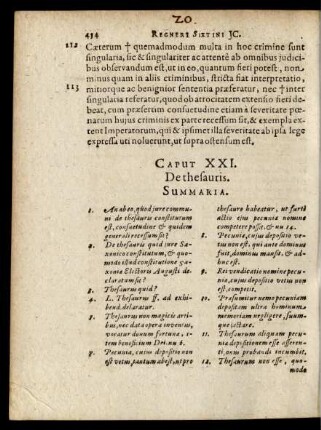 20.
414 REGNERI SIXTINI JC.
112 Cæterum † quemadmodum multa in hoc crimine sunt
singularia, sic & singulariter ac attentè ab omnibus judici-
bus observandum est, ut in eo, quantum fieri potest, non
minus quam in aliis criminibus, stricta fiat interpretatio,
113 mitiorque ac benignior sententia præferatur, nec † inter
singularia referatur, quod ab atrocitatem extensio fieri de-
beat, cum præsertim consuetudine etiam à severitate pœ-
narum hujus criminis ex parte recessum sit, & exempla ex-
tent Imperatorum, qui & ipsimet illa severitate ab ipsa lege
expressa uti noluerunt, ut supra ostensum est.
CAPUT XXI.
De thesauris.
SUMMARIA.
1. An ab eo, quod jure commu-
ni de thesauris constitutum
est, consuetudine & quidem
generali recessum sit?
2. De thesauris quid jure Sa-
xonico constitutum, & quo-
modo illud constitutione Sa-
xonia Electoris Augusti de-
claratum sit?
3. Thesaurus quid?
4. L. Thesaurus ff. ad exhi-
bend. declaratur.
5. Thesaurus non magicis arti-
bus, nec data opera inventus,
vocatur donum fortunæ, i-
tem beneficium Dei. nu. 6.
7. Pecunia, cujus depositio non
est vetus, pantum abest, ut pro
thesauro habeatur, ut furti
altio ejus pecuniæ nomine
competere possit. & nu 14.
8. Pecunia, cujus depositio ve-
tus non est, qui ante dominus
fuit, dominus mansit, & ad-
huc est.
9. Rei vendicatio nomine pecu-
niæ, cujus depositio vetus non
est, competit.
10. Præsumitur nemo pecuniam
depositam ultra hominum
memoriam negligere, suum-
que jactare.
11. Thesaurum aliquam pecu-
niæ depositionem esse afferenti,
onus probandi incumbit.
12. Thesaurum non esse, quo-
modo